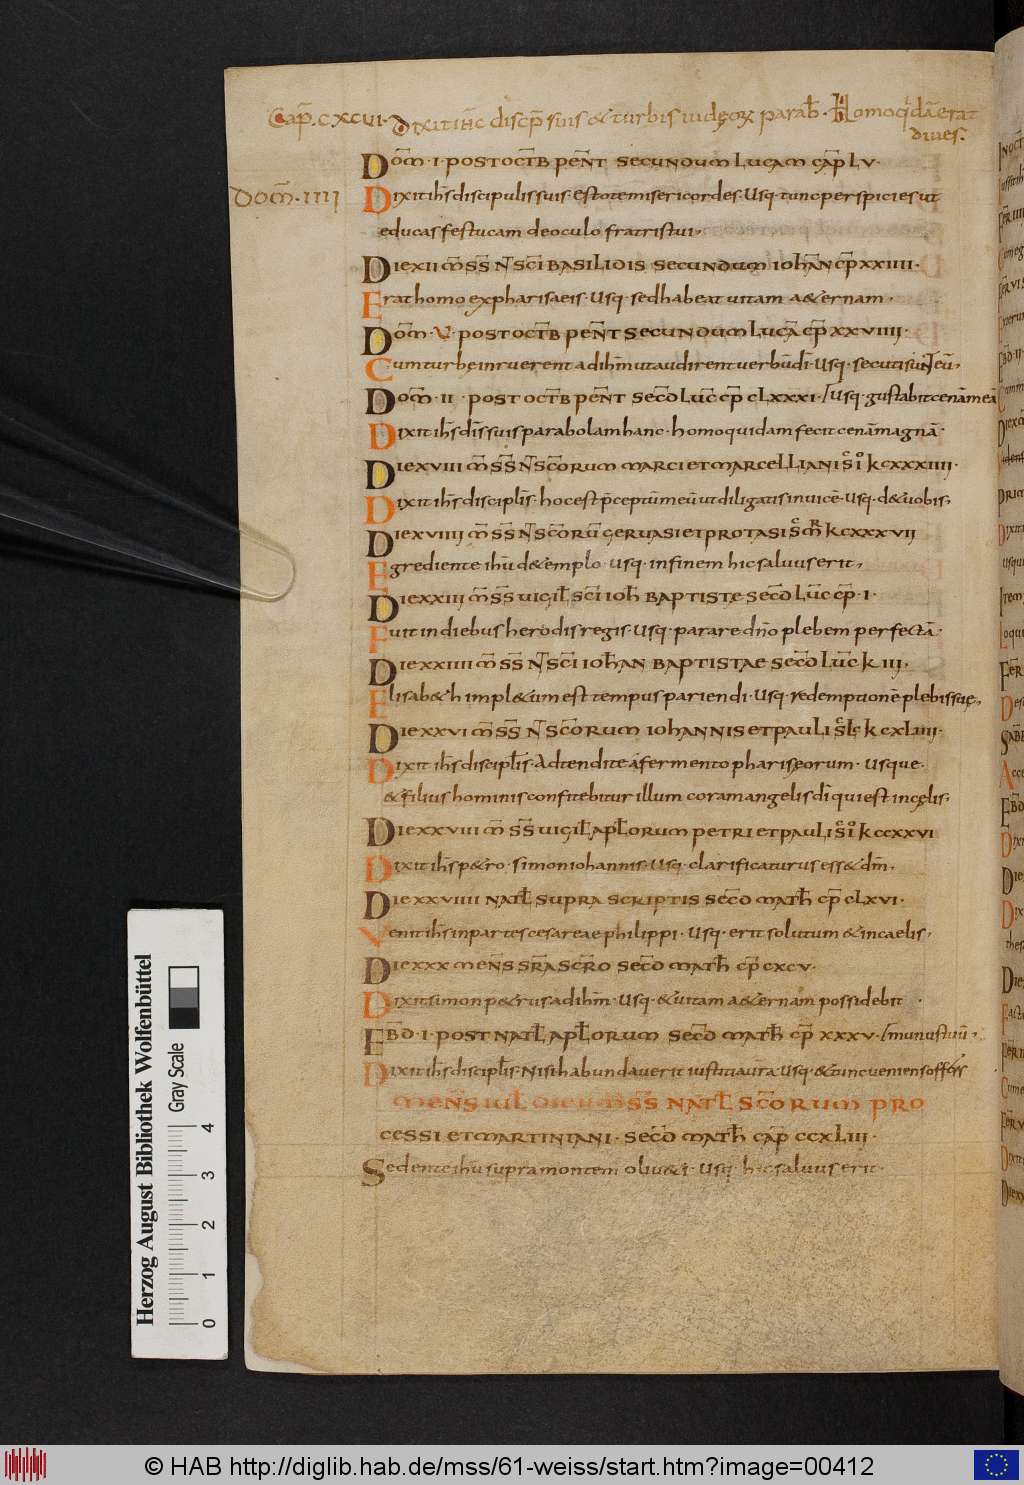 Cap̄. cxcvi. Dixit ihc̄ discp̄ suis & turbis iudęoꝝ parab̄. Homo qͥdā erat
diues.
Dom̄. IIII
Dom̄. I. post oct̄b pent̄ secundum lucam cap̄ LV.
Dixit ihs̄ discipulis suis. estote misericordes. usq. tunc perspicies ut
educas festucam de oculo fratris tui,
Die XII m̄ s̄s̄ N̄ sc̄i basilidis secundum iohān cp̄ XXIIII.
Erat homo ex pharisaeis. usq. sed habeat uitam a&ernam,
Dom̄. V. post oct̄b pent̄ secundum lucā cp̄ XXVIIII.
Cum turbę inruerent ad ihm̄ ut audirent uerbū dī. usq. secuti sunt eū,
Dom̄. II. post oct̄b pent̄ secd̄ luc̄ cp̄ CLXXXI. / usq. gustabit cenā meā
Dixit ihs̄ dis̄ suis parabolam hanc. homo quidam fecit cenā magnā.
Die XVIII m̄ s̄s̄ N̄ sc̄orum marci et marcelliani s̄ īo k CXXXIIII.
Dixit ihs̄ disciplis̄. hoc est p̄ceptū meū ut diligatis inuicē. usq. d& uobis,
Die XVIIII m̄ s̄s̄ N̄ sc̄orū geruasi et protasi s̄ m̄r k CXXXVII
Egrediente ihū de templo. usq. in finem hic saluus erit,
Die XXIII m̄ s̄s̄ uigil̄ sc̄i ioh̄ baptistę secd̄ luc̄ cp̄. I.
Fuit in diebus herodis regis. usq. parare dn̄o plebem perfectā.
Die XXIIII m̄ s̄s̄ N̄ sc̄i ioh̄an baptistae secd̄ luc̄ k III,
Elisab&h impl&um est tempus pariendi. usq. redemptionē plebis suę,
Die XXVI m̄ s̄s̄ N̄ sc̄orum iohannis et pauli s̄ lc̄ k CXLIIII.
Dixit ihs̄ disciplis̄. Adtendite a fermento pharisęorum. usque.
& filius hominis confitebitur illum coram angelis dī qui est in cęlis,
Die XXVIII m̄ s̄s̄ uigil̄ apl̄orum petri et pauli s̄ īo k CCXXVI
Dixit ihs̄ p&ro. simon iohannis. usq. clarificaturus ess& dm̄,
Die XXVIIII natl̄ supra scriptis secd̄ math̄ cp̄ CLXVI.
Venit ihs̄ in partes cesareae philippi. usq. erit solutum & in caelis,
Die XXX mens̄ sr̄a scr̄o secd̄ math̄ cp̄ CXCV.
Dixit simon p&rus ad ihm̄. usq. & uitam a&ernam possidebit.
Ebd̄. I. post natl̄ apl̄orum secd̄ math̄ cp̄ XXXV. / munus tuū,
Dixit ihs̄ disciplis̄. Nisi habundauerit iustitia ūra. usq. & tunc ueniens offeres
Mens iul̄ die II m̄ s̄s̄ natl̄ sc̄orum pro
cessi et martiniani. secd̄ math̄ cap̄ CCXLIII.
Sedente ihū supra montem oliu&i. usq. hic saluus erit.
Herzog August Bibliothek Wolfenbüttel
Gray Scale
0 1 2 3 4
© HAB http://diglib.hab.de/mss/61-weiss/start.htm?image=00412